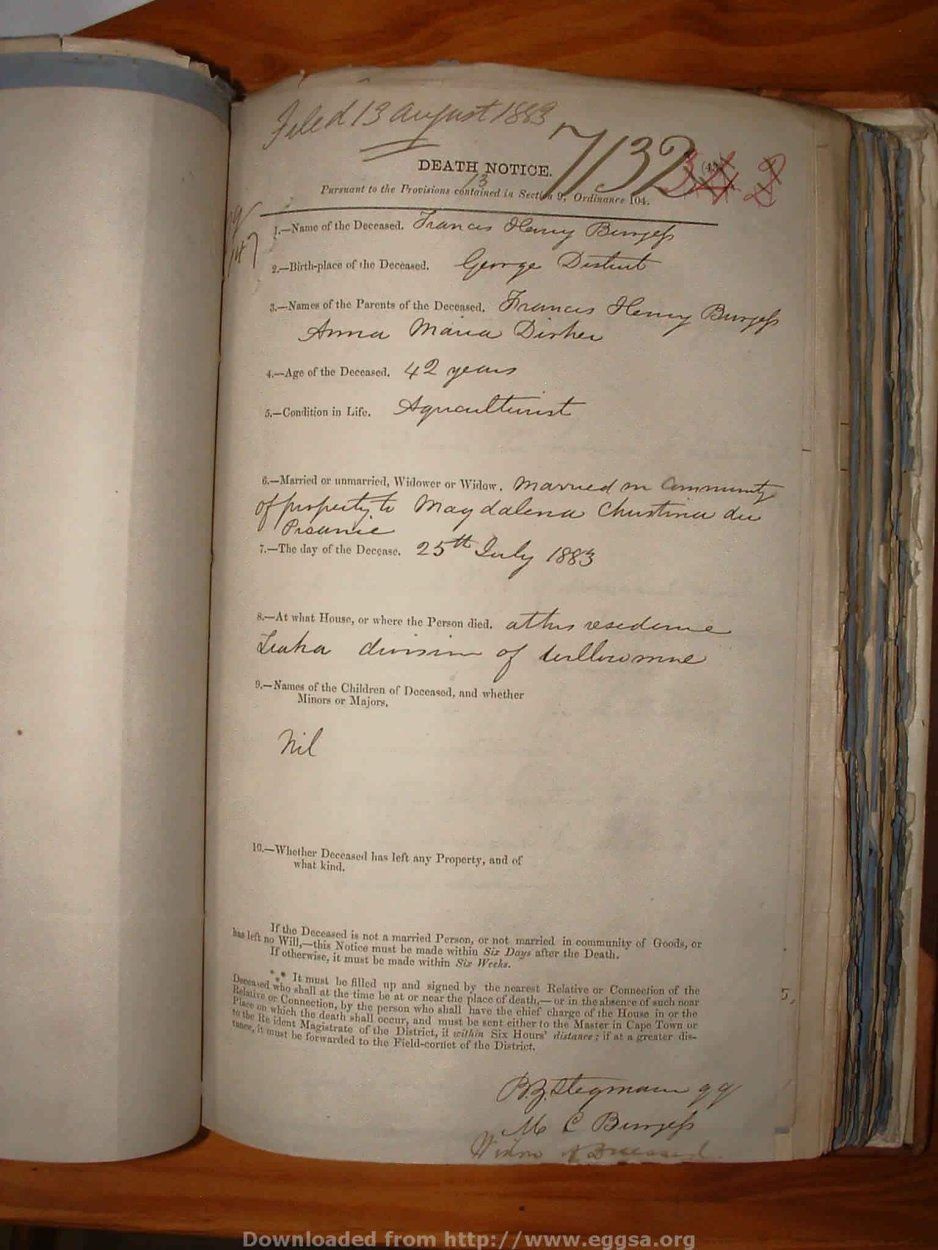 Filed 13 August 1883
7132
DEATH NOTICE.
13
Pursuant to the Provisions contained in Section 9, Ordinance 104.
1.—Name of the Deceased. Francis Henry Burgess
2.—Birth-place of the Deceased. George District
3.—Names of the Parents of the Deceased. Francis Henry Burgess
Anna Maria Disher
4.—Age of the Deceased. 42 years
5.—Condition in Life. Agriculturist
6.—Married or unmarried, Widower or Widow. Married in Community
of property to Magdalena Christina du
Pisanie
7.—The day of the Decease. 25th July 1883
8.—At what House, or where the Person died. at his residence
division of Willowmore
9.—Names of the Children of Deceased, and whether
Minors or Majors.
Nil
10.—Whether Deceased has left any Property, and of
what kind.
If the Deceased is not a married Person, or not married in community of Goods, or
has left no Will,—this Notice must be made within Six Days after the Death.
If otherwise, it must be made within Six Weeks.
*** It must be filled up and signed by the nearest Relative or Connection of the
Deceased who shall at the time be at or near the place of death,—or in the absence of such near
Relative or Connection, by the person who shall have the chief charge of the House in or the
Place on which the death shall occur, and must be sent either to the Master in Cape Town or
to the Resident Magistrate of the District, if within Six Hours' distance; if at a greater dis-
tance, it must be forwarded to the Field-cornet of the District.
Stegmann qq
M C Burgess
Widow of Deceased
Downloaded from http://www.eggsa.org